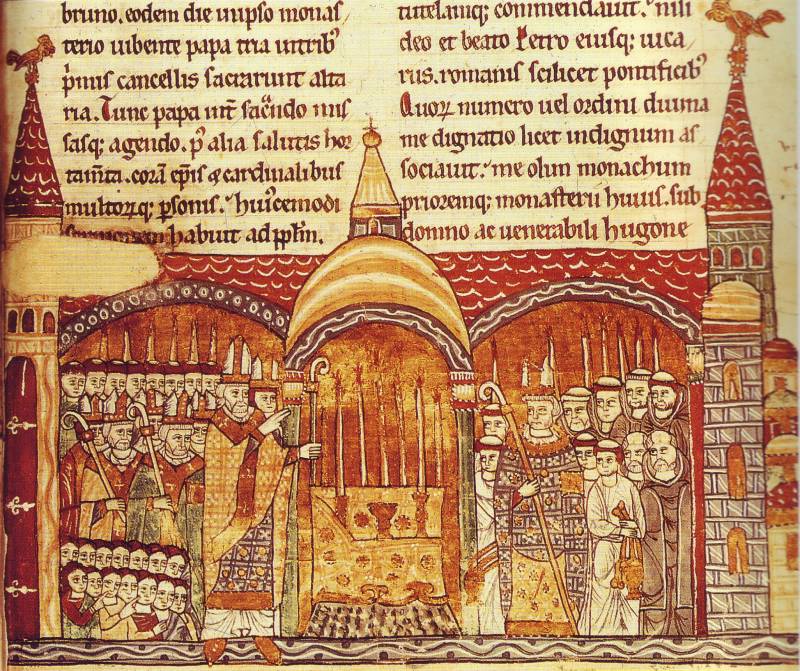 bruno. eodem die in ipso monaſ
terio iubente papa tria in tribꝰ
p̄miſ cancelliſ ſacrarunt alta
ria. Tunc papa int̄ ſac̄ndo miſ
ſaſq; agendo. p̄ alia ſalutiſ hor
tam̄ta. corā ep̄iſ & cardinalibus
multoꝝq; p̄ſoniſ. hui᾽cemodi
habuit ad pp̄lm.
tutelamq; commendauit. niſi
deo et beato Petro eiuſq; uica
rus. romaniſ ſcilicet pontificibꝰ
Quoꝝ numero uel ordini diuina
me dignatio licet indignum aſ
ſociauit. me olim monachum
prioremq; monaſterii huiuſ. ſub
domno ac uenerabili hugone